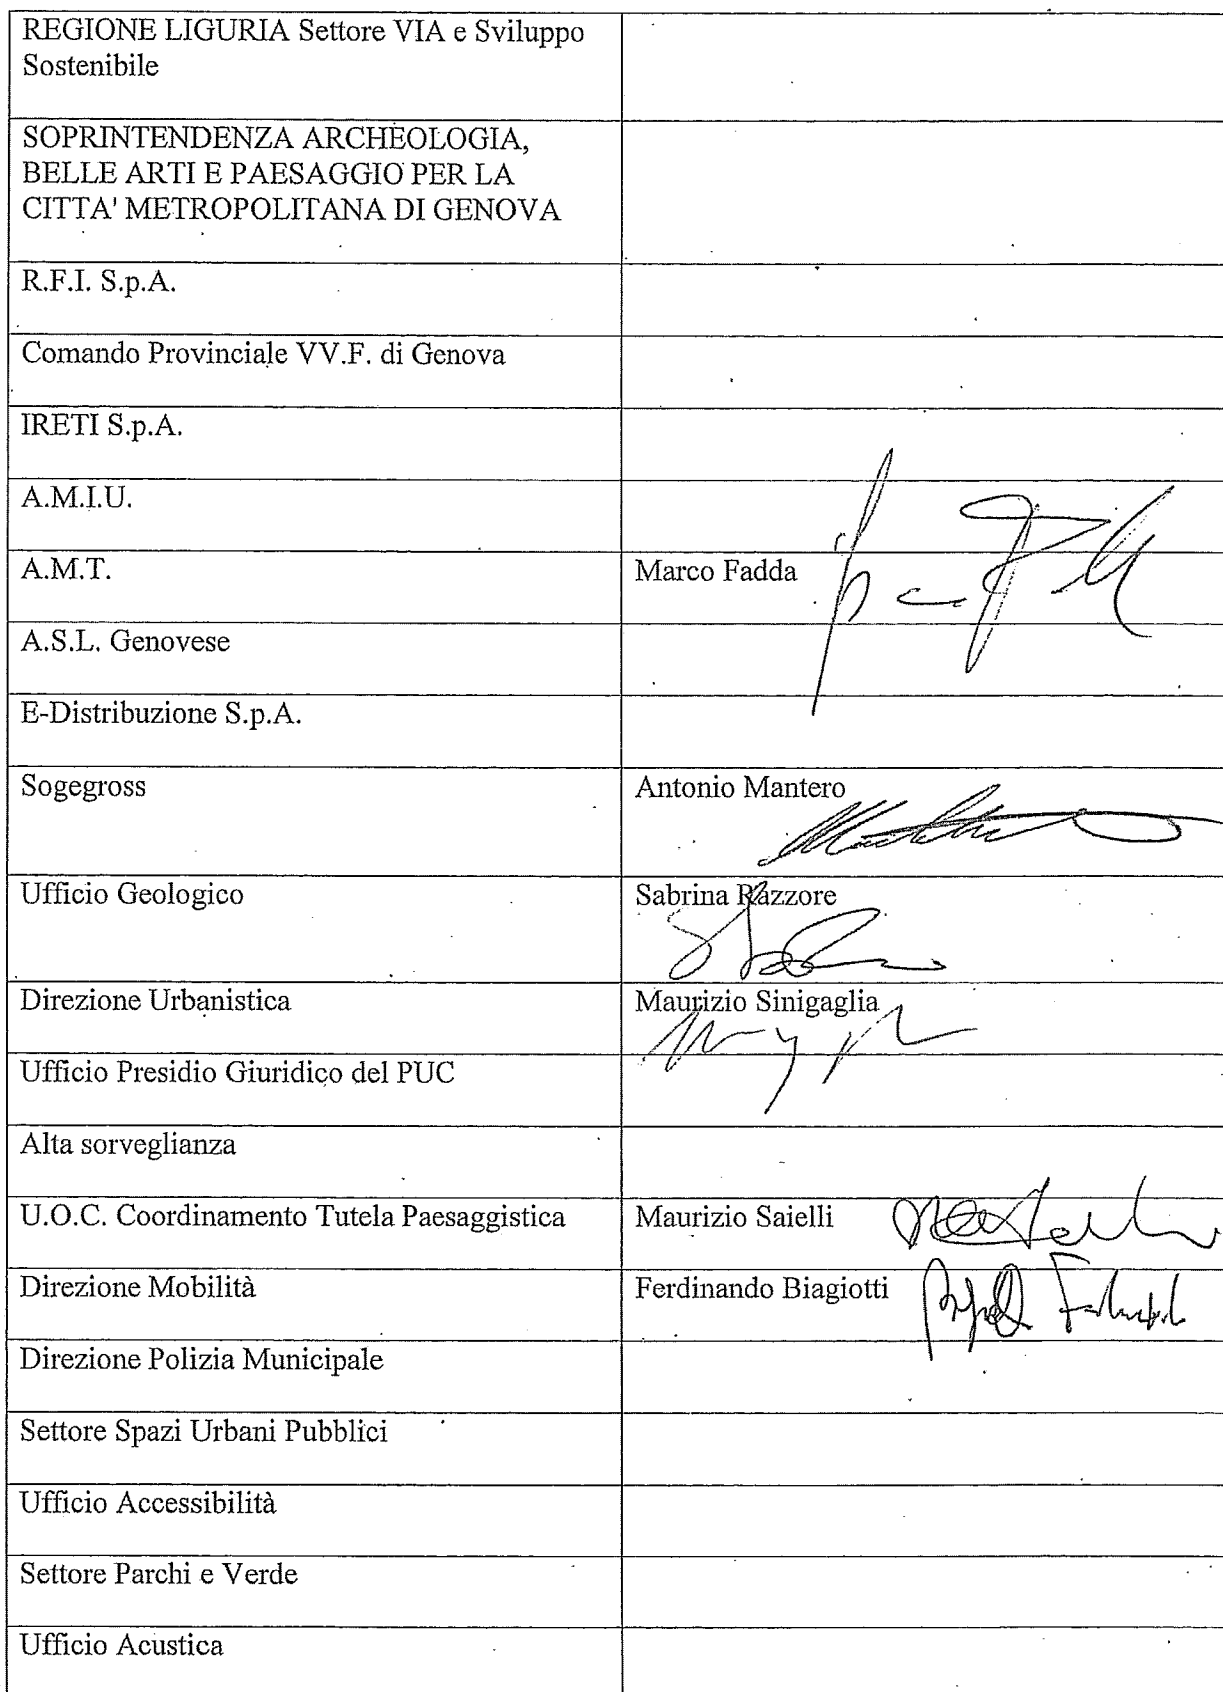 REGIONE LIGURIA Settore VIA e Sviluppo
Sostenibile
SOPRINTENDENZA ARCHEOLOGIA,
BELLE ARTI E PAESAGGIO PER LA
CITTA' METROPOLITANA DI GENOVA
R.F.I. S.p.A.
Comando Provinciale VV.F. di Genova
IRETI S.p.A.
A.M.I.U.
A.M.T.
Marco Fadda
A.S.L. Genovese
E-Distribuzione S.p.A.
Sogegross
Antonio Mantero
Ufficio Geologico
Sabrina Razzore
Direzione Urbanistica
Maurizio Sinigaglia
Ufficio Presidio Giuridico del PUC
Alta sorveglianza
U.O.C. Coordinamento Tutela Paesaggistica
Maurizio Saielli
Direzione Mobilità
Ferdinando Biagiotti
Direzione Polizia Municipale
Settore Spazi Urbani Pubblici
Ufficio Accessibilità
Settore Parchi e Verde
Ufficio Acustica